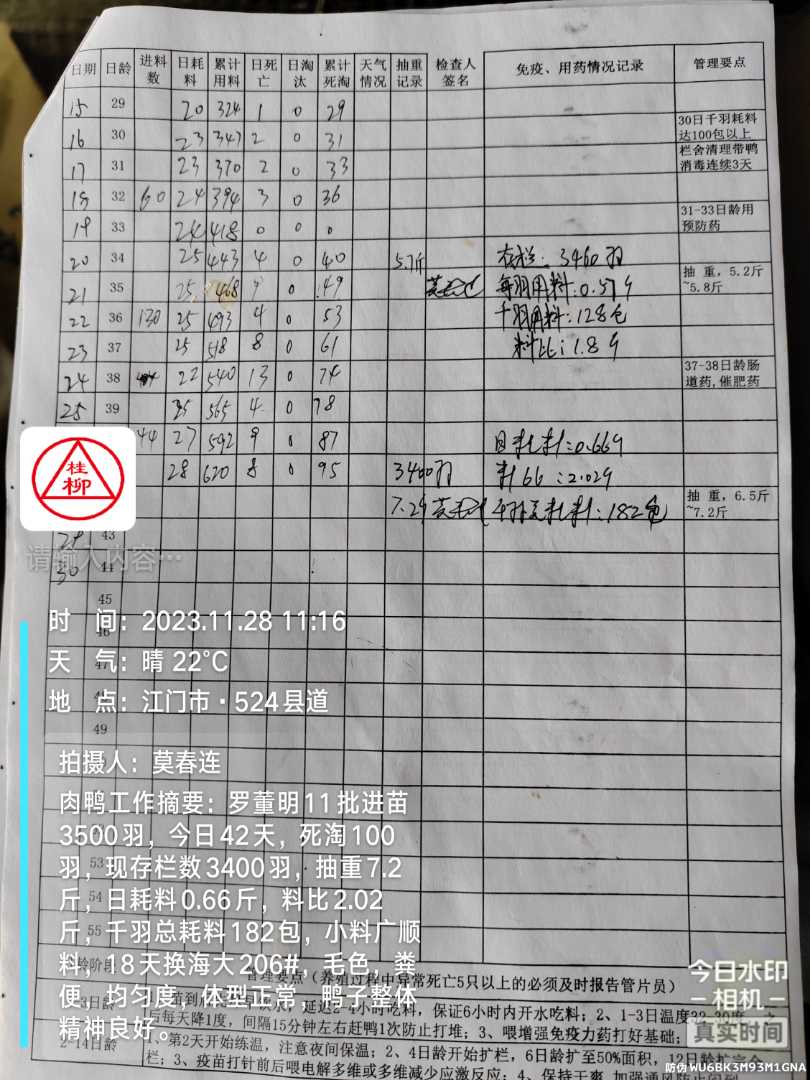 日期 日龄 进料数 日耗料 累计用料 日死亡 日淘汰 累计死淘 天气情况 抽重记录 检查人签名 免疫、用药情况记录 管理要点
15 29 20 324 1 0 29
16 30 23 347 2 0 31 30日千羽耗料达100包以上
17 31 23 370 2 0 33 栏舍清理带鸭消毒连续3天
18 32 60 24 394 3 0 36
19 33 24 418 0 0 0 31-33日龄用预防药
20 34 25 443 4 0 40 5.7斤 存栏:3460羽
21 35 25 468 9 0 49 每羽用料:0.57 抽 重,5.2斤~5.8斤
22 36 130 25 493 4 0 53 千羽用料:128包
23 37 25 518 8 0 61 料比:1.8
24 38 22 540 13 0 74 37-38日龄肠道药,催肥药
25 39 565 4 0 78
44 27 592 9 87 日耗料:0.66
28 620 8 0 95 3400羽 料比:2.02
7.2 总耗料:182包 抽 重,6.5斤~7.2斤
43
30 44
45
46
47
48
49
53
54
55
桂柳
请输入内容…
时 间:2023.11.28 11:16
天 气:晴 22℃
地 点:江门市·524县道
拍摄人:莫春连
肉鸭工作摘要:罗董明11批进苗
3500羽,今日42天,死淘100
羽,现存栏数3400羽,抽重7.2
斤,日耗料0.66斤,料比2.02
斤,千羽总耗料182包,小料广顺
料,18天换海大206#,毛色,粪
便,均匀度,体型正常,鸭子整体
精神良好。
龄阶段 管理要点(养殖过程中异常死亡5只以上的必须及时报告管片员)
延迟2-4小时吃料,保证6小时内开水吃料;2、1-3日温度
后每天降1度,间隔15分钟左右赶鸭1次防止打堆;3、喂增强免疫力药打好基础;
2-14日龄 第2天开始练温,注意夜间保温;2、4日龄开始扩栏,6日龄扩至50%面积,12日龄扩
栏;3、疫苗打针前后喂电解多维或多维减少应激反应;4、保持干爽
今日水印
相机
真实时间
防伪 WU6BK3M93M1GNA